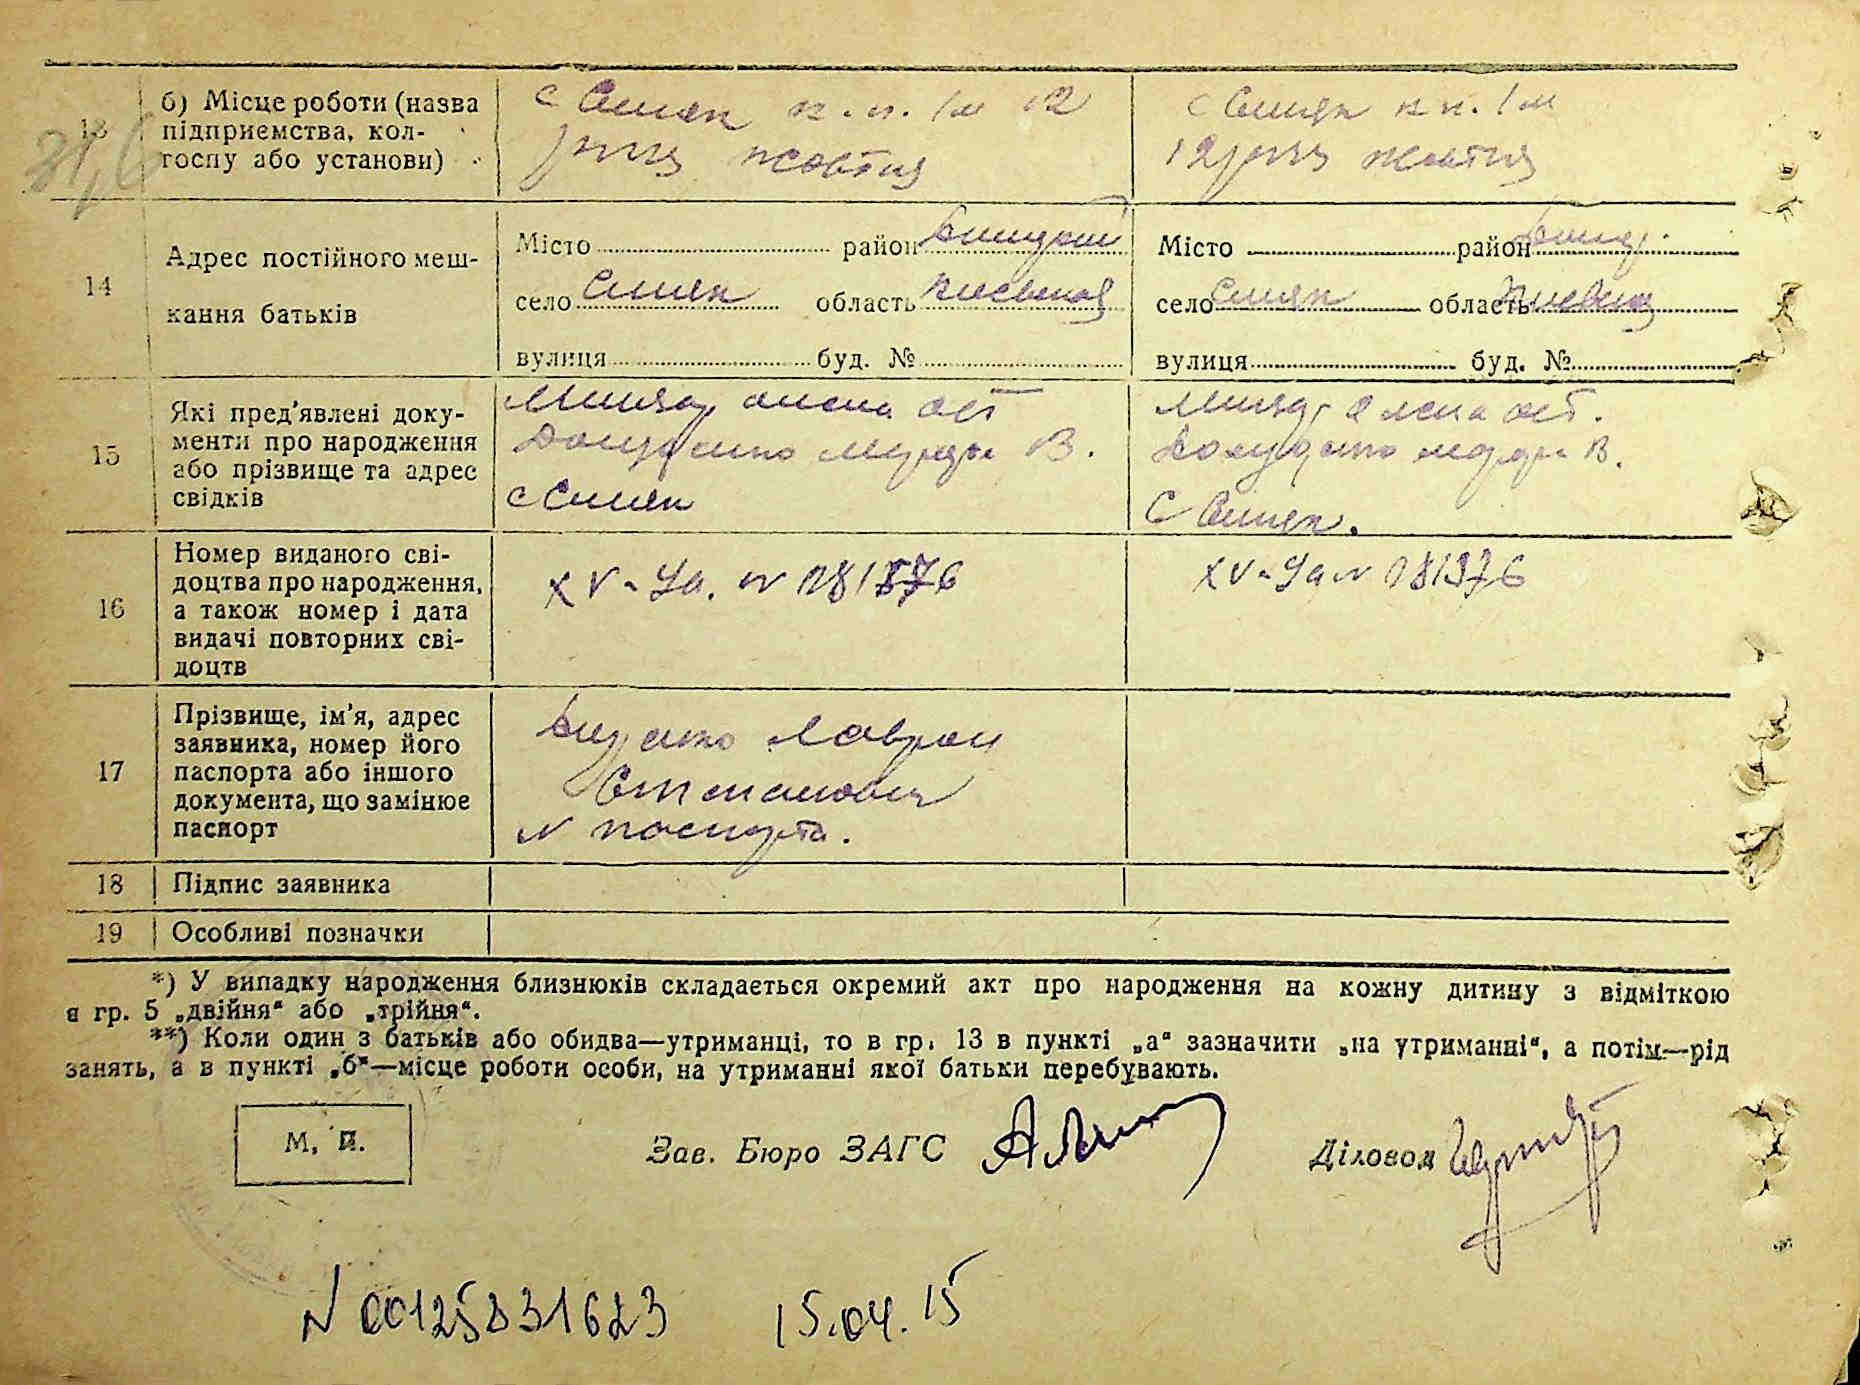 13
б) Місце роботи (назва
підприємства, кол-
госпу або установи)
с Синяк к. п. Ім 12
річчя жовтня
с Синяк к п. Ім
12 річчя жовтня
14
Адрес постійного меш-
кання батьків
Місто район
село Синяк область Киевская
вулиця буд. №
Місто район
село Синяк область
вулиця буд. №
15
Які пред'явлені доку-
менти про народження
або прізвище та адрес
свідків
В.
с Синяк
В.
С Синяк.
16
Номер виданого сві-
доцтва про народження,
а також номер і дата
видачі повторних сві-
доцтв
XV-Уа. N
XV-Уа N
17
Прізвище, ім'я, адрес
заявника, номер його
паспорта або іншого
документа, що замінює
паспорт
Степанович
N паспорта.
18
Підпис заявника
19
Особливі позначки
*) У випадку народження близнюків складається окремий акт про народження на кожну дитину з відміткою
в гр. 5 „двійня“ або „трійня“.
**) Коли один з батьків або обидва—утриманці, то в гр. 13 в пункті „а“ зазначити „на утриманні“, а потім—рід
занять, а в пункті „б“—місце роботи особи, на утриманні якої батьки перебувають.
М. П.
Зав. Бюро ЗАГС
Діловод
N 00125831623 15.04.15